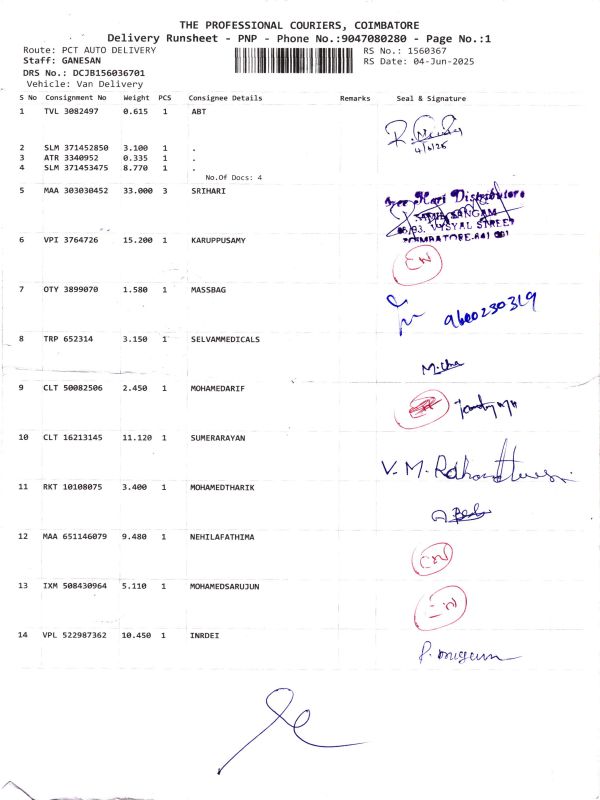 THE PROFESSIONAL COURIERS, COIMBATORE
Delivery Runsheet - PNP - Phone No.:9047080280 - Page No.:1
Route: PCT AUTO DELIVERY RS No.: 1560367
Staff: GANESAN RS Date: 04-Jun-2025
DRS No.: DCJB156036701
Vehicle: Van Delivery
S No Consignment No Weight PCS Consignee Details Remarks Seal & Signature
1 TVL 3082497 0.615 1 ABT
4/6/25
2 SLM 371452850 3.100 1 .
3 ATR 3340952 0.335 1 .
4 SLM 371453475 8.770 1 .
No.Of Docs: 4
5 MAA 303030452 33.000 3 SRIHARI
Sree Hari Distributors
VYSYAL STREET
COIMBATORE-641 001
6 VPI 3764726 15.200 1 KARUPPUSAMY
7 OTY 3899070 1.580 1 MASSBAG
9600230319
8 TRP 652314 3.150 1 SELVAMMEDICALS
9 CLT 50082506 2.450 1 MOHAMEDARIF
10 CLT 16213145 11.120 1 SUMERARAYAN
V. M.
11 RKT 10108075 3.400 1 MOHAMEDTHARIK
12 MAA 651146079 9.480 1 NEHILAFATHIMA
13 IXM 508430964 5.110 1 MOHAMEDSARUJUN
14 VPL 522987362 10.450 1 INRDEI